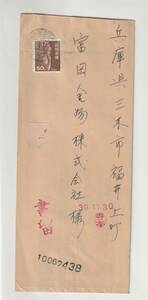 兵庫県三木市福井上町
富田金物株式会社様
書留
39.11.30
10062438